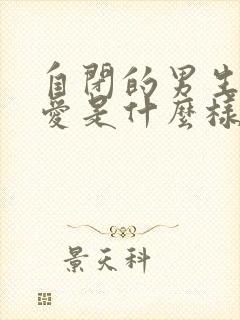 自閉的男生
愛是什麼樣
景天科